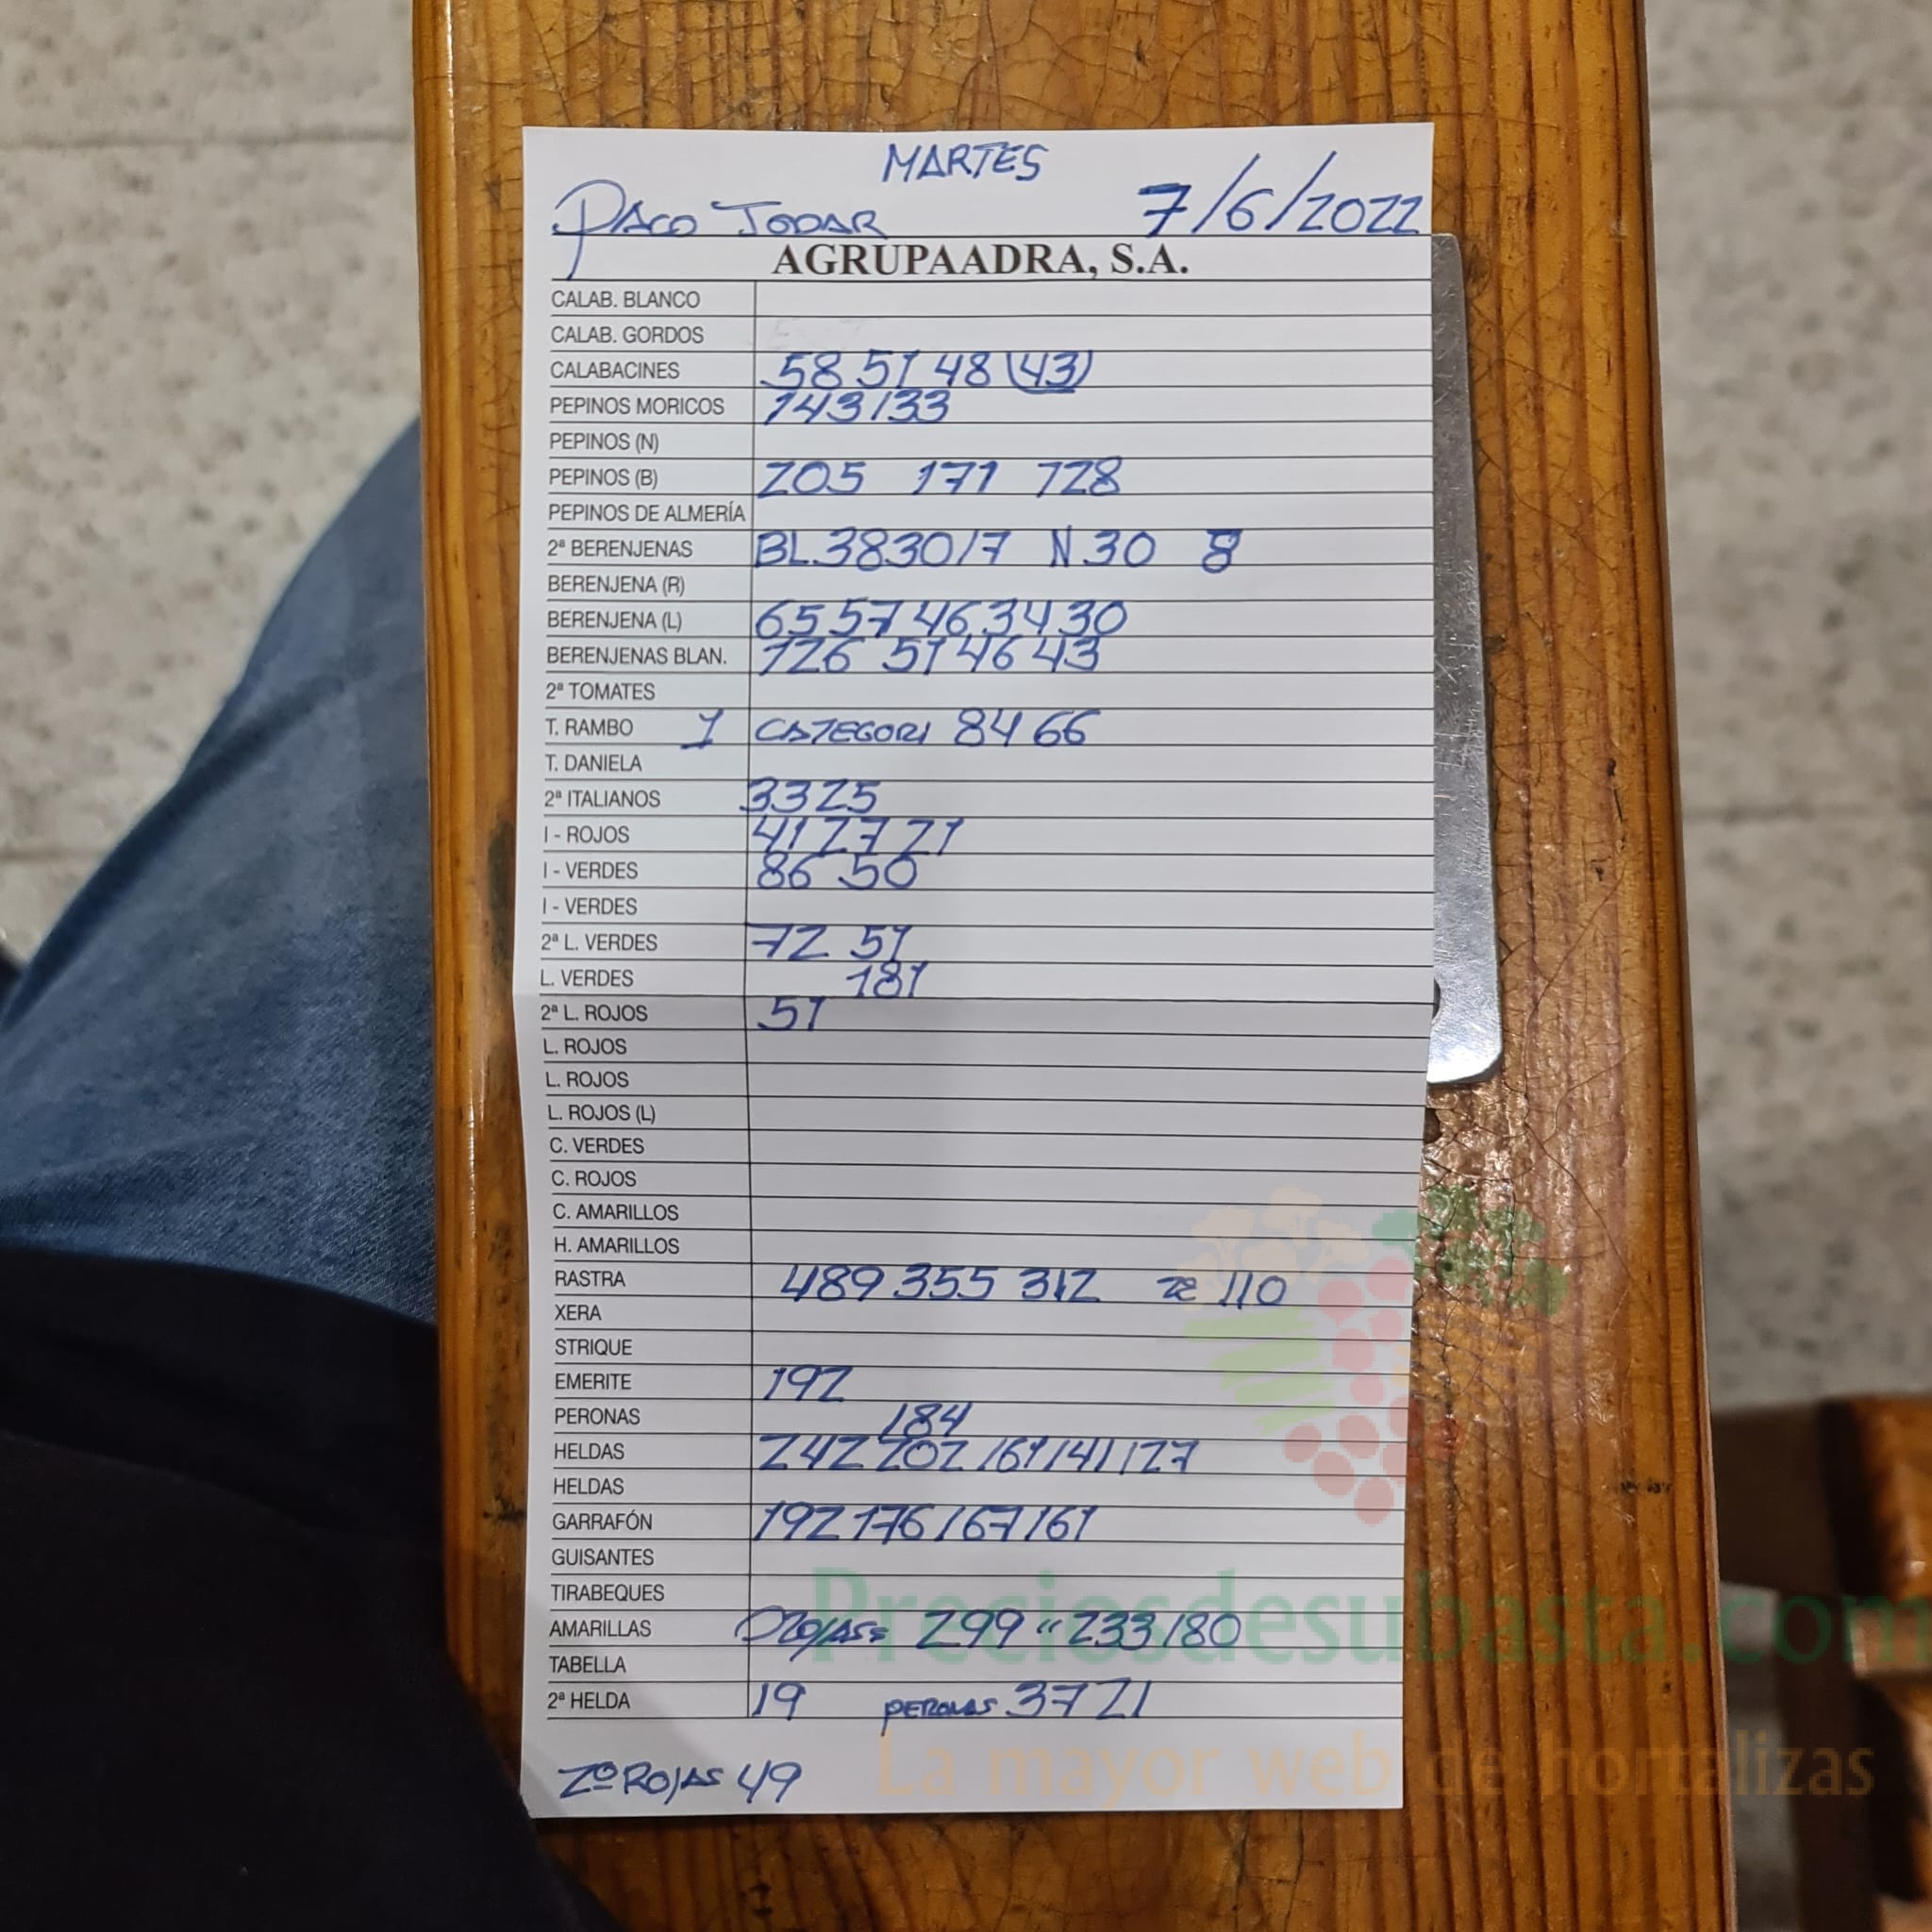 MARTES
PACO JODAR 7/6/2022
AGRUPAADRA, S.A.
CALAB. BLANCO
CALAB. GORDOS
CALABACINES 58 51 48 (43)
PEPINOS MORICOS 143 133
PEPINOS (N)
PEPINOS (B) 205 171 128
PEPINOS DE ALMERÍA
2ª BERENJENAS BL. 38 30 17 N 30 8
BERENJENA (R)
BERENJENA (L) 65 57 46 34 30
BERENJENAS BLAN. 126 51 46 43
2ª TOMATES
T. RAMBO 1 CATEGORI 84 66
T. DANIELA
2ª ITALIANOS 33 25
I - ROJOS 41 27 21
I - VERDES 86 50
I - VERDES
2ª L. VERDES 72 51
L. VERDES 181
2ª L. ROJOS 51
L. ROJOS
L. ROJOS
L. ROJOS (L)
C. VERDES
C. ROJOS
C. AMARILLOS
H. AMARILLOS
RASTRA 489 355 312 2ª 110
XERA
STRIQUE
EMERITE 192
PERONAS 184
HELDAS 242 202 161 141 127
HELDAS
GARRAFÓN 192 176 167 161
GUISANTES
TIRABEQUES
AMARILLAS ROJAS= 299 " 233 180
TABELLA
2ª HELDA 19 PERONAS 37 21
2º ROJAS 49
Preciosdesubasta.com
La mayor web de hortalizas